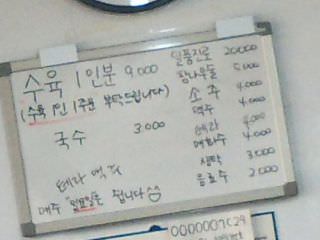 수육 1인분 9,000
(수육 1인 1주문 부탁드립니다)
국수 3,000
테라 맥주
매주 일요일은 쉽니다
일품진로 20,000
참나무통 5,000
소주 4,000
맥주 4,000
테라 4,000
매화수 4,000
생탁 3,000
음료수 2,000